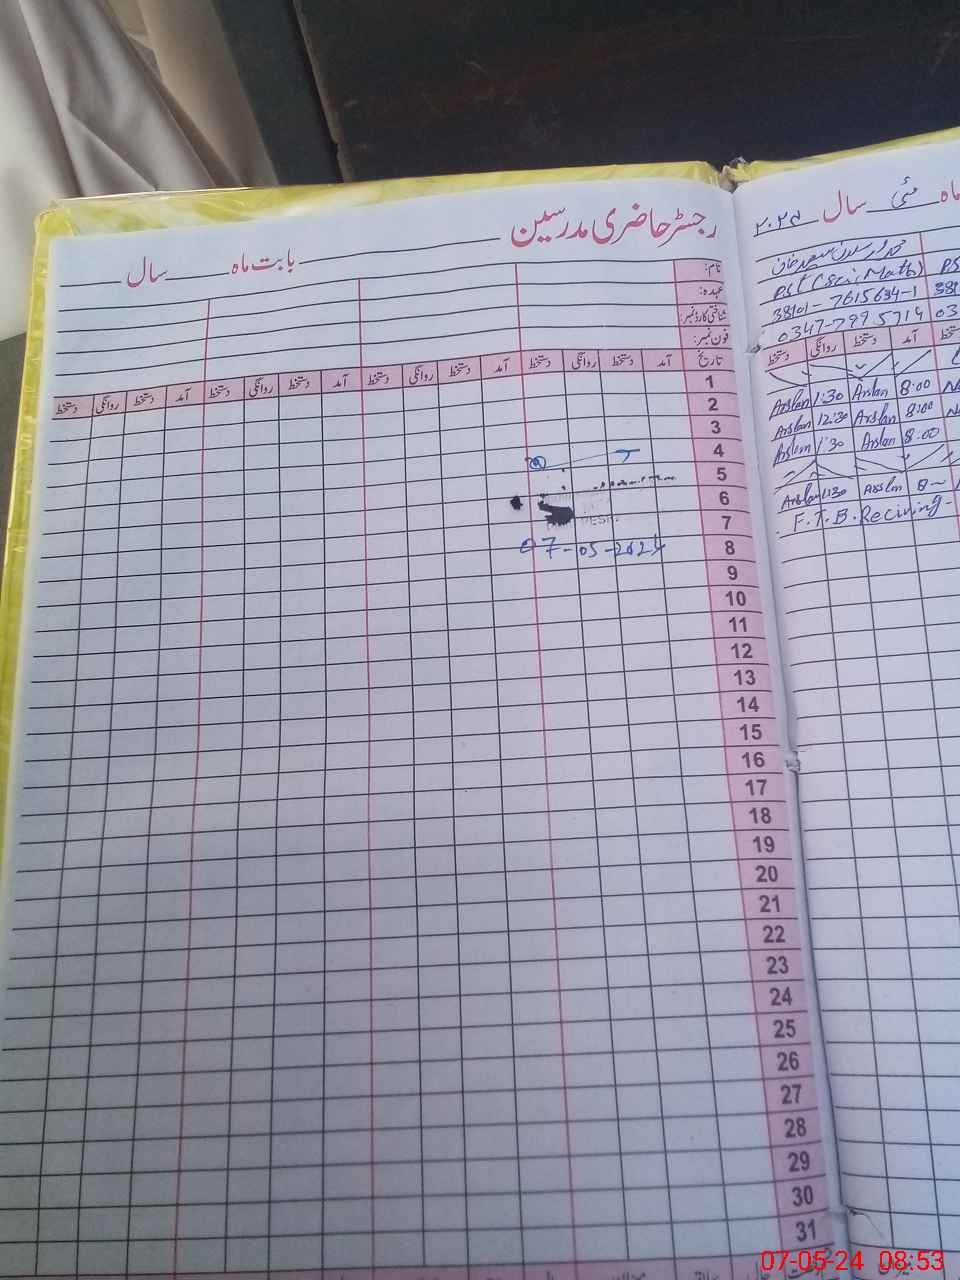 رجسٹر حاضری مدرسین بابت ماہ سال
نام:
عہدہ:
شناختی کارڈ نمبر:
فون نمبر:
تاریخ آمد دستخط روانگی دستخط آمد دستخط روانگی دستخط آمد دستخط روانگی دستخط آمد دستخط روانگی دستخط
1
2
3
4
5
6
7
8
9
10
11
12
13
14
15
16
17
18
19
20
21
22
23
24
25
26
27
28
29
30
31
07-05-2024
ماہ مئی سال ۲۰۲۴
PST (Sci, Math)
38101-7615634-1 381
0347-7995714 03
آمد دستخط روانگی دستخط
Arslan 1:30 Arslan 8:00
Arslan 12:30 Arslan 8:00
Arslan 1:30 Arslan 8:00
Arslan 1:30 Arslan 8
F.T.B. Reciving
07-05-24 08:53